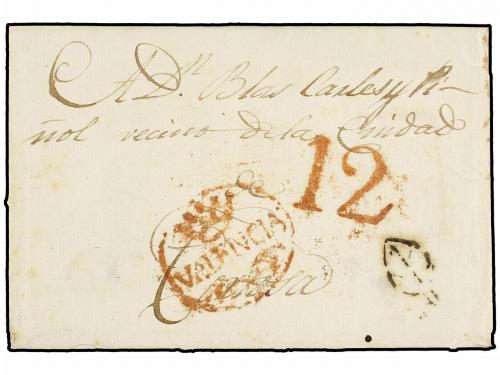 A D.n Blas Carles y Ri-
ñol vecino de la Ciudad
12
de
VALENCIA